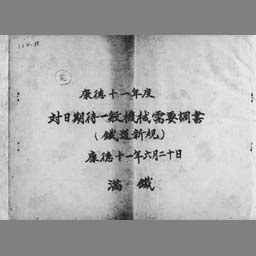 康徳十一年度
対日期待一般機械需要調書
(鐵道新規)
康徳十一年六月二十日
満鐵